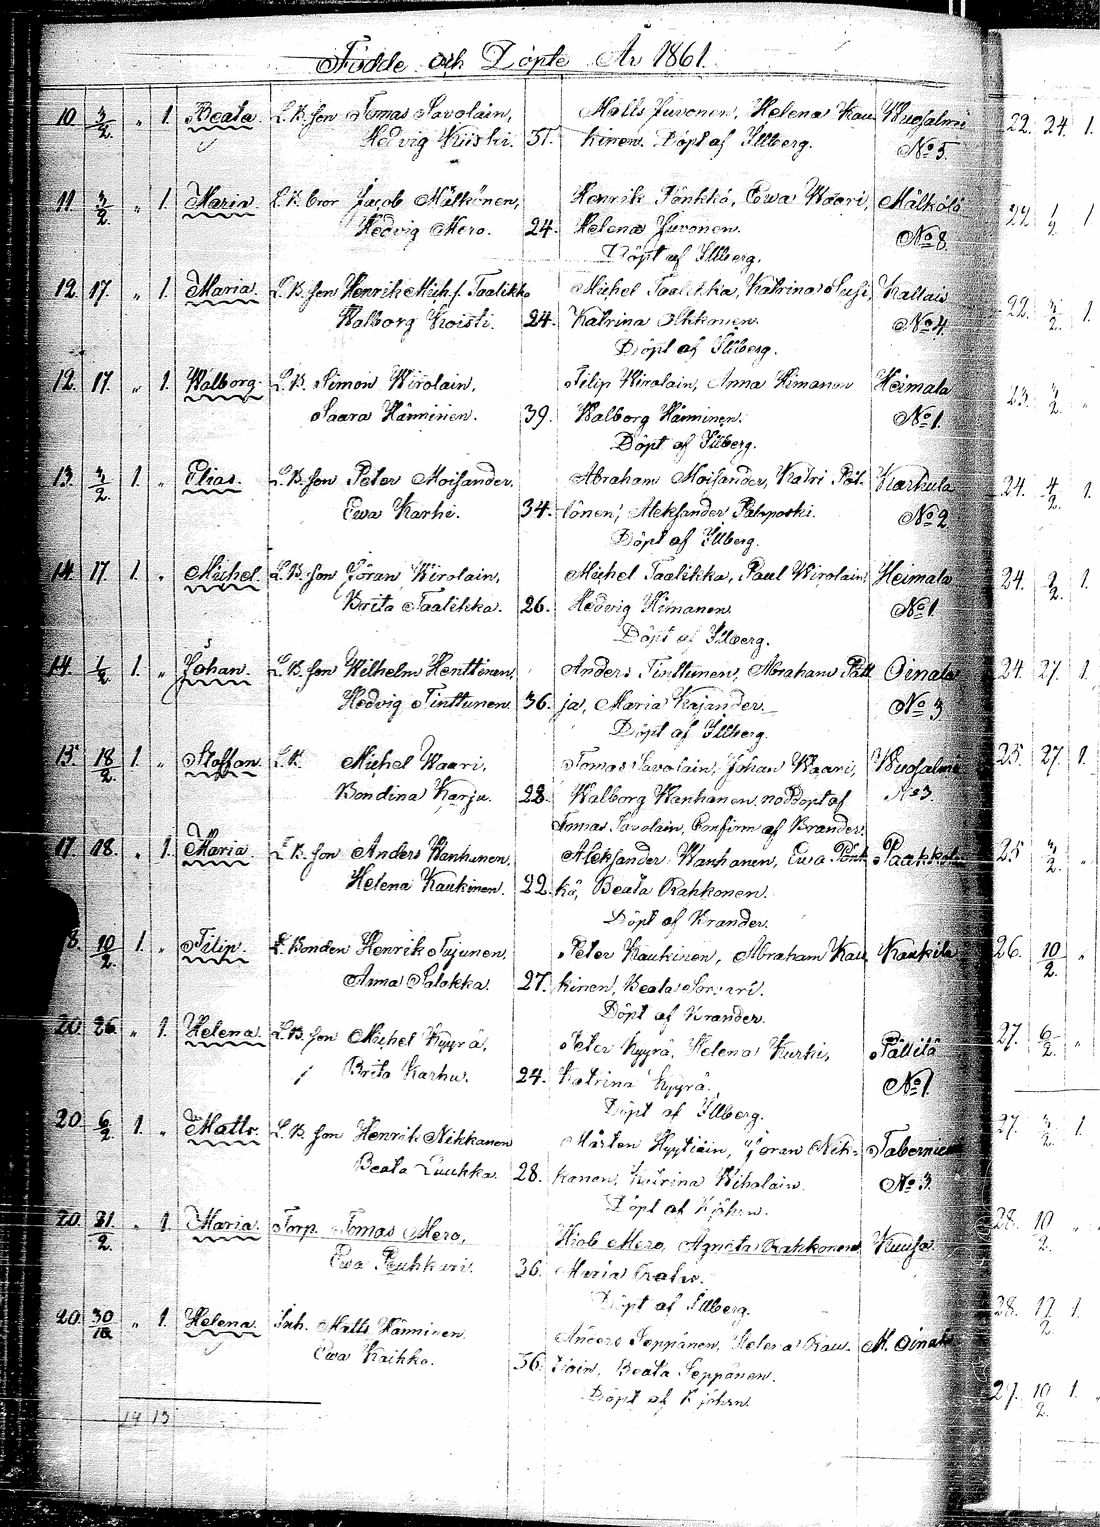 Födde och Döpte År 1861.
10. 3/2. " 1. Beata. L. B. son Tomas Savolain, Matts Juvonen, Helena Kau- Wuosalmi
Hedvig Kiiski. 31. kinen. Döpt af Illberg. No 5.
11. 3/2. " 1. Maria L. B. bror Jacob Mälkönen, Henrik Pönkkö, Ewa Waari, Mälkölä
Hedvig Mero. 24. Helena Juvonen. No 8.
Döpt af Illberg.
12. 17. " 1. Maria. L. B. son Henrik Mich. s. Taalikka Michel Taalikka, Katrina Susi, Kallais
Walborg Koisti. 24. Katrina Ahkonen. No 4.
Döpt af Illberg.
12. 17. " 1. Walborg. L. B. Simon Wirolain, Filip Wirolain, Anna Himanen Heimala
Saara Hänninen. 39. Walborg Hänninen. No 1.
Döpt af Illberg.
13. 3/2. 1. " Elias. L. B. son Peter Moisander. Abraham Moisander, Katri Pöl- Karhula
Ewa Karhi. 34. lönen, Aleksander No 2
Döpt af Illberg.
14. 17. 1. " Michel. L. B. son Jöran Wirolain, Michel Taalikka, Paul Wirolain, Heimala
Brita Taalikka. 26. Hedvig Himanen. No 1.
Döpt af Illberg.
14. 1/2. 1. " Johan. L. B. son Wilhelm Henttinen, Anders Tinttunen, Abraham Oinala
Hedvig Tinttunen 36. ja, Maria Kajander. No 3.
Döpt af Illberg.
15. 18/2. 1. " Staffan. L. B. Michel Waari, Tomas Savolain, Johan Waari, Wuosalmi
Bondina Karju. 28. Walborg Wanhanen, nöddöpt af No 3.
Tomas Savolain, Confirm af Krander.
17. 18. " 1. Maria. L. B. son Anders Wanhanen, Aleksander Wanhanen, Ewa Pönk- Paakkola
Helena Kaukinen. 22. kö, Beata Rahkonen.
Döpt af Krander.
18. 10/2. 1. " Filip. L. Bonden Henrik Tujunen Peter Kaukinen, Abraham Kau- Kaukila
Anna Palokka. 27. kinen, Beata
Döpt af Krander.
20. 26. " 1. Helena. L. B. son Michel Kyyrä, Peter Kyyrä, Helena Kurki, Pällilä
Brita Karhu. 24. Katrina Kyyrä. No 1.
Döpt af Illberg.
20. 6/2. 1. " Matts. L. B. son Henrik Nikkanen Mårten Hyytiäin, Jöran Nik-
Beata Luukka. 28. kanen, Katrina Wiholain. No 3.
Döpt af
20. 31/2. " 1. Maria. Torp. Tomas Mero, Hiob Mero, Agneta Rahkonen, Kuusa
Ewa Ruhkari. 36. Maria
Döpt af Illberg.
20. 30/12. " 1. Helena. Inh. Matts Hänninen. Anders Seppänen, Helena Kau- M. Oinala
Ewa Kaikko. 36. Beata Seppänen.
Döpt af
14 13
22. 24. 1.
22. 1/2. 1
22. 3/2. 1.
23. 3/2. "
24. 4/2. 1.
24. 2/2. 1.
24. 27. 1.
25. 27. 1.
25. 3/2. "
26. 10/2. "
27. 6/2. "
27. 3/2. 1.
28. 10/2. "
28. 17/2. 1.
27. 10/2. 1.